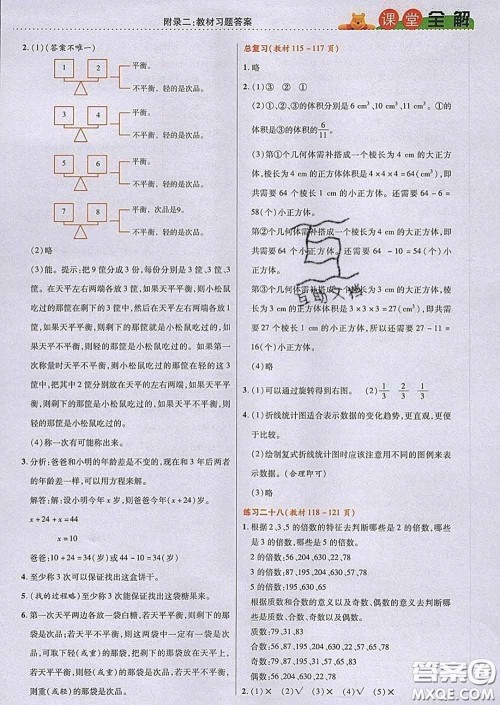 附录二:教材习题答案
课堂全解
2. (1)(答案不唯一)
1 2
平衡。
不平衡,轻的是次品。
3 4
平衡。
不平衡,轻的是次品。
5 6
平衡。
不平衡,轻的是次品。
7 8
平衡,次品是9。
不平衡,轻的是次品。
(2)略
(3)能。提示:把 9 筐分成 3 份,每份 3 筐,3 筐,3
筐。在天平左右两端各放 1 份,如果天平平
衡,则剩下的 3 筐中,然后在天平左右两端各放 1
筐,如果天平平衡,则剩下的那筐就是小松鼠吃过
的;如果天平不平衡,轻的那筐是小松鼠吃过的。如果
第一次称量时天平不平衡,则从轻的 3 筐
中,把其中 2 筐分别放在天平的左右两端,如果
天平平衡,则剩下的那筐是小松鼠吃过的;如果天平不平衡,
轻的那筐是小松鼠吃过的。
(4)称一次有可能称出来。
3. 分析:爸爸和小明的年龄差是不变的。现在和 3 年后两者
的年龄差都是一样的。
解答:解:设小明今年 x 岁,爸爸今年(x+24)岁。
x+24+x=44
x=10
爸爸:10+24=34(岁) 小明:10 岁
4. 至少称 3 次可以保证找出这盒饼干。
5. (我的过程略)至少称 3 次能保证找出这袋糖果。
6. 第一次天平两边各放一袋白糖,若天平平衡,则剩下的那袋是次品,
可取下轻(或重)的那袋,换上剩下的那袋,若天平平衡,
则取下的轻(或重)的那袋是次品;若天平不平衡,
则重(或轻)的那袋是次品。
总复习(教材 115-117 页)
1. 略
2. (1)③ ② ①
(2)①、②、③的体积分别是 6 cm³、10 cm³、11 cm³。①的
体积是③的体积的6/11。
(3)第①个几何体需补搭成一个棱长为 4 cm 的大正方
体,棱长为 4 cm 的正方体体积是 4×4×4=64(cm³),即
共需要 64 个棱长 1 cm 的小正方体。还需要 64-6=
58(个)小正方体。
第②个几何体需补搭成一个棱长为 4 cm 的大正方体,
即共需要 64 个小正方体。还需要 64-10=54(个)小
正方体。
第③个几何体需补搭成一个棱长为 3 cm 的大正方体,
棱长为 3 cm 的正方体体积是 3×3×3=27(cm³),即共
需要 27 个棱长 1 cm 的小正方体,所以还需要 27-11=
16(个)小正方体。
(4)略
3. (1)可以通过旋转得到右图。 (2)1/3 2/3 1/3
4. (1)折线统计图适合表示数据的变化趋势,更直观,更
便于比较。
(2)绘制复式折线统计图时应该注意用不同的图例来
表示不同的数据。
练习二十八(教材 118-121 页)
1. 根据 2,3,5 的倍数的特征去判断哪些是 2 的倍数,哪些
是 3 的倍数,哪些是 5 的倍数。
2 的倍数:56,204,630,22,78
3 的倍数:87,195,204,630,78
5 的倍数:195,630
根据质数和合数的意义以及奇数、偶数的意义去判断哪
些是质数、合数、奇数、偶数。
质数:79,31,83
合数:56,87,195,204,630,22,57,65,78
奇数:79,87,195,31,57,65,83
偶数:56,204,630,22,78
2. (1)× (2)√ (3)× (4)× (5)√
互助文档
答案圈
MXQE.COM